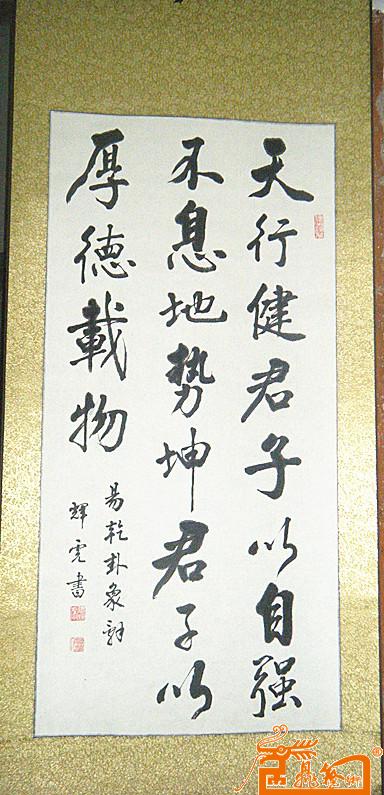 天行健君子以自强
不息地势坤君子以
厚德載物
易乾卦象辞
輝虎書